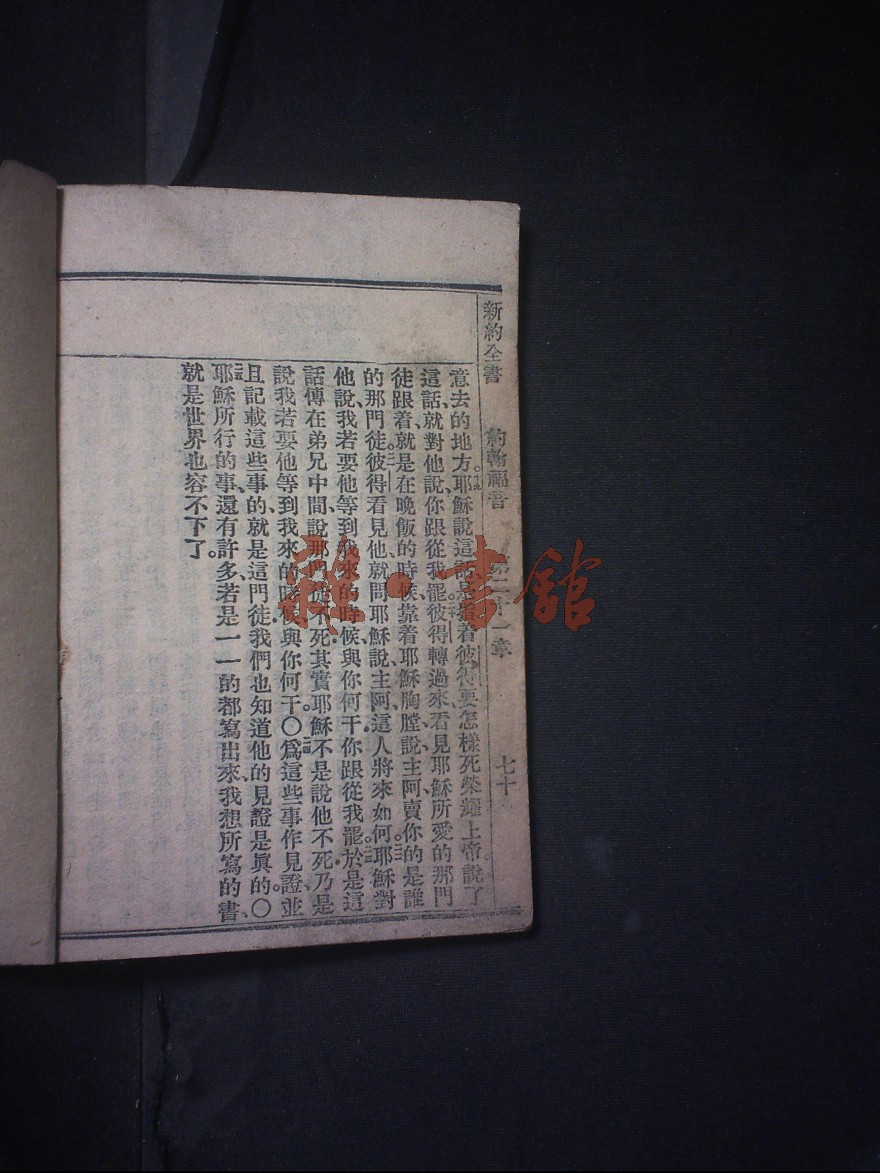 新約全書 約翰福音 第二十一章 七十
意去的地方、耶穌說這話是指着彼得要怎樣死、榮耀上帝、說了
這話、就對他說、你跟從我罷。彼得轉過來、看見耶穌所愛的那門
徒跟着、就是在晚飯的時候、靠着耶穌胸膛說、主阿、賣你的是誰
的那門徒。彼得看見他、就問耶穌說、主阿、這人將來如何。耶穌對
他說、我若要他等到我來的時候、與你何干、你跟從我罷。於是這
話傳在弟兄中間、說那門徒不死、其實耶穌不是說他不死、乃是
說我若要他等到我來的時候、與你何干。〇爲這些事作見證、並
且記載這些事的、就是這門徒、我們也知道他的見證是眞的。〇
耶穌所行的事、還有許多、若是一一的都寫出來、我想所寫的書、
就是世界也容不下了。
雜·書館